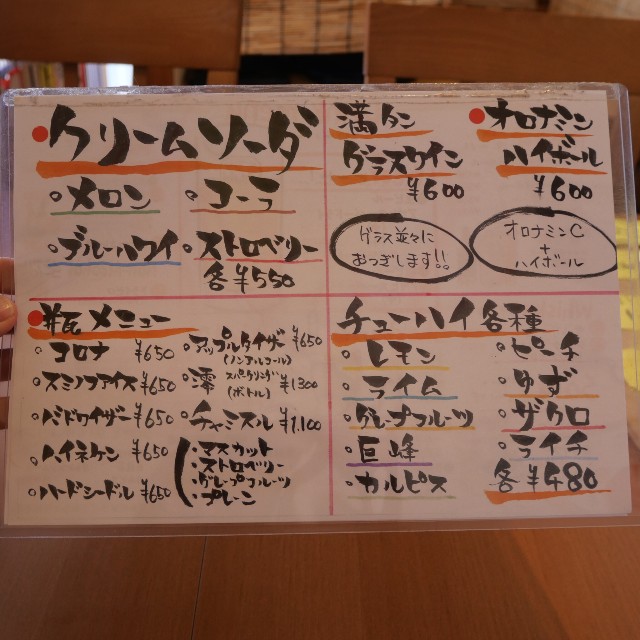 クリームソーダ
メロン コーラ
ブルーハワイ ストロベリー
各¥550
満タン
グラスワイン
¥600
グラス並々に
おつぎします!!
オロナミン
ハイボール
¥600
オロナミンC
+
ハイボール
メニュー
コロナ ¥650
スミノフアイス ¥650
バドワイザー ¥650
ハイネケン ¥650
ハードシードル ¥650
アップルタイザー ¥650
(ノンアルコール)
澪 スパークリング ¥1300
(ボトル)
チャミスル ¥1,100
マスカット
ストロベリー
グレープフルーツ
プレーン
チューハイ各種
レモン
ライム
グレープフルーツ
巨峰
カルピス
ピーチ
ゆず
ザクロ
ライチ
各¥480